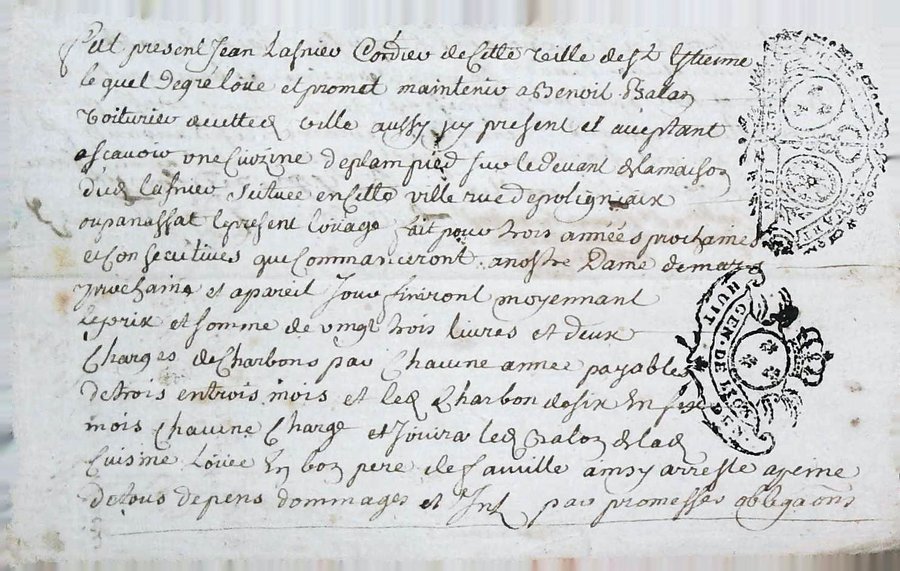 Fut present Jean Lasnier Cordier de Cette Ville de St Estienne
lequel degré loüe et promet maintenir a Benoit Chalan
Voiturier de cette d ville aussy icy present et aceptant
ascavoir une Cuizine deplampied sur le devant de la maison
dud Lasnier scituée en Cette ville rue de
le present loüage fait pour trois années prochaines
et Consecutives que Commanceront a nostre Dame de mars
prochaine et a pareil Jour finiront moyennant
le prix et somme de vingt trois livres et deux
Charges de Charbons par Chacune année payables
de trois en trois mois et led Charbon de six en six
mois Chacune Charge et Jouira led Chalan de lad
Cuisine Louée En bon pere de famille ainsy arresté a peine
de tous depens dommages et Int par promesses obligaons
LION
HUIT
GEN. DE LION